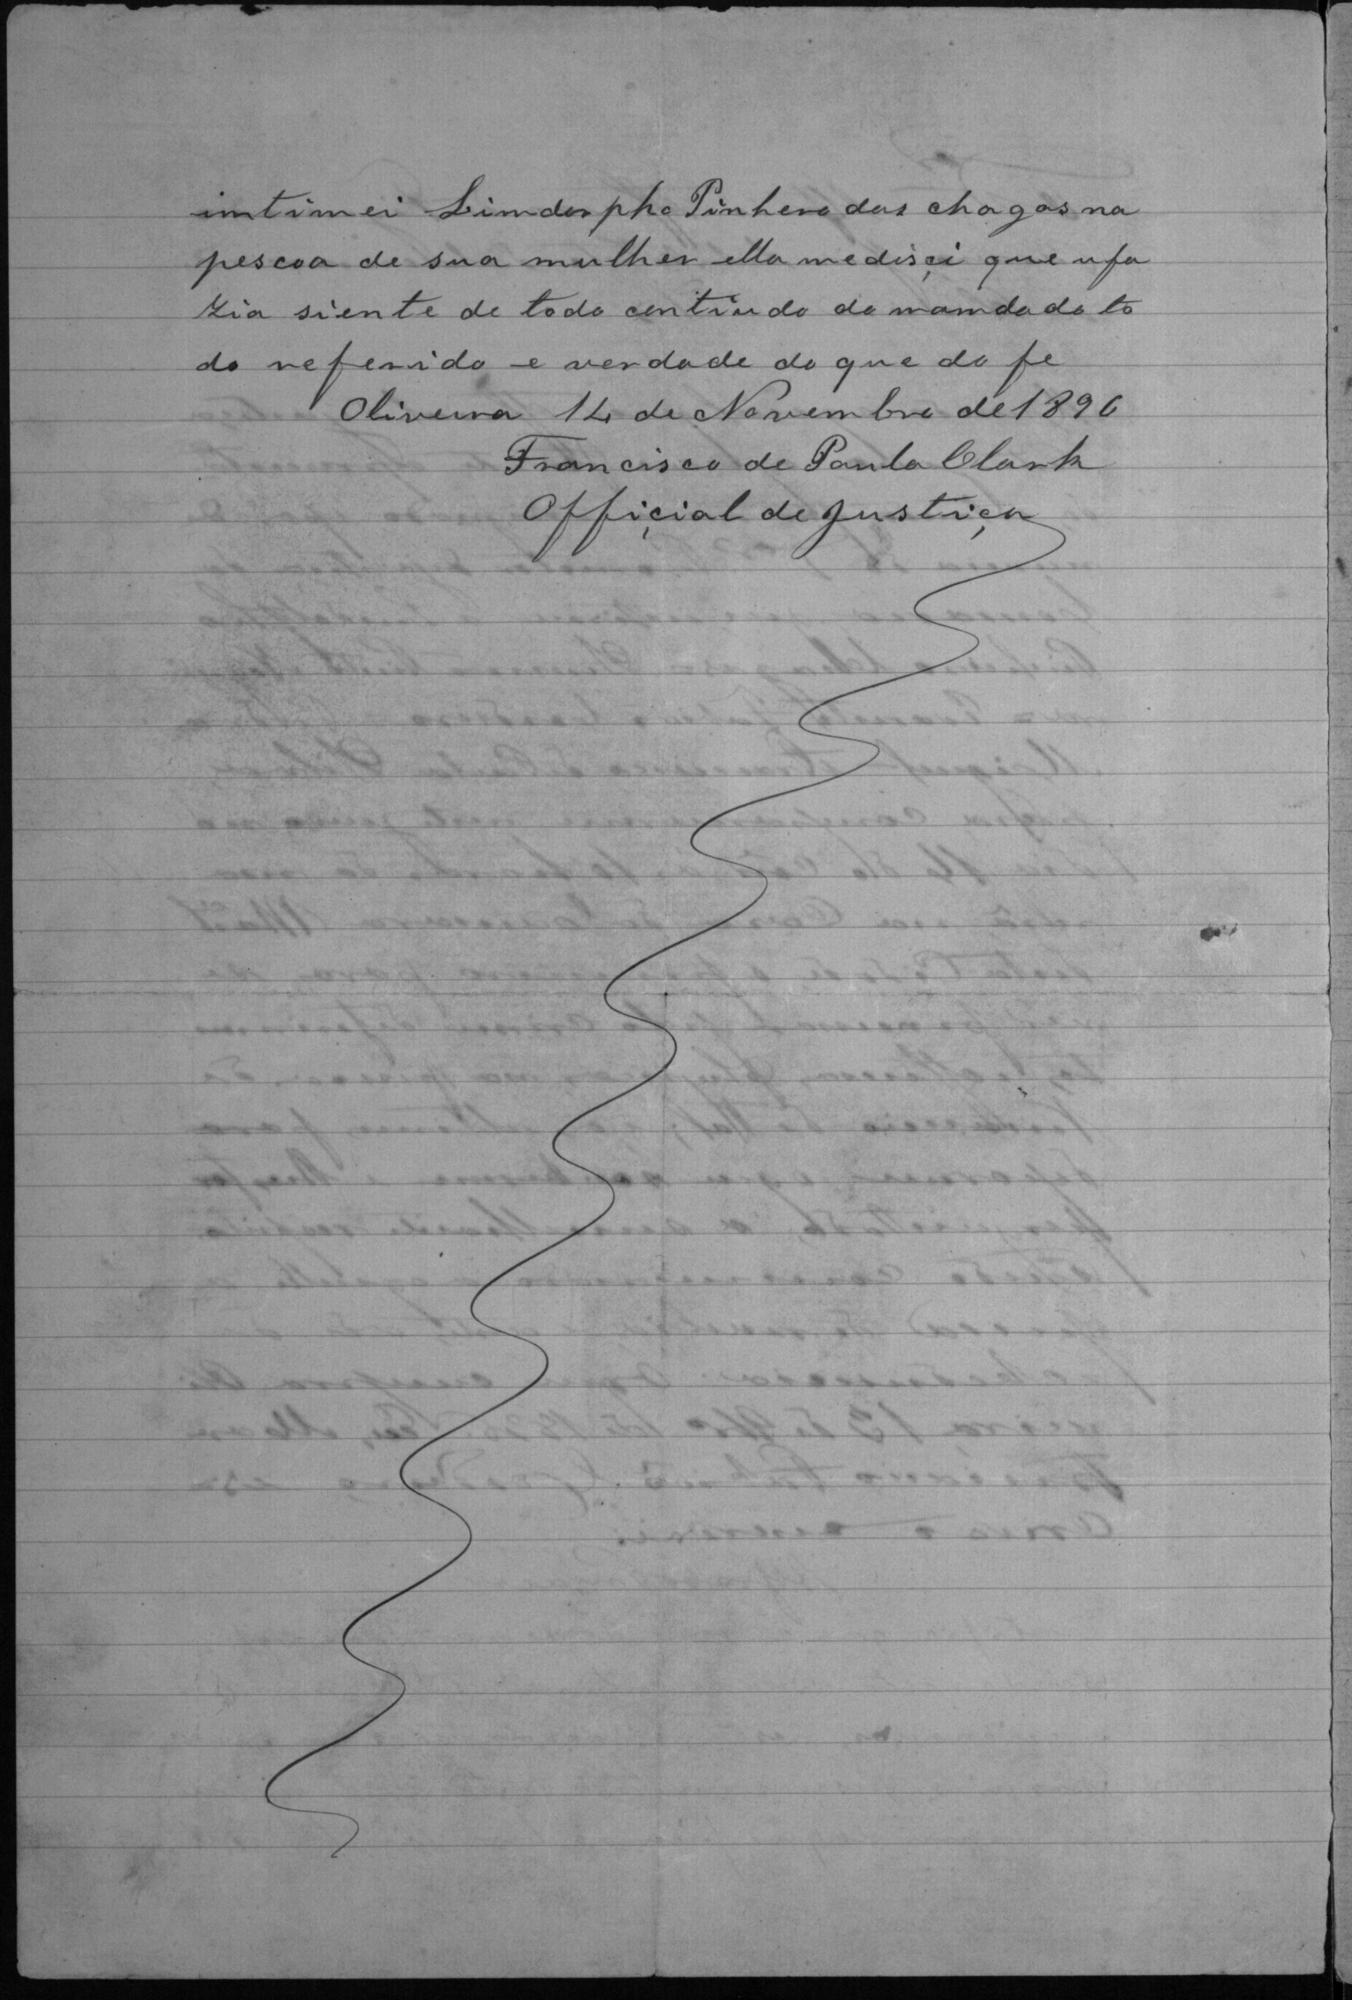 imtimei Limdorpho Pinhero das chagas na
pescoa de sua mulher ella me disçi que ufa
zia siente de todo contiudo do mamdado to
do referido e verdade do que do fe
Oliveira 14 de Novembro de 1890
Francisco de Paula Clark
Offiçial de Justiça